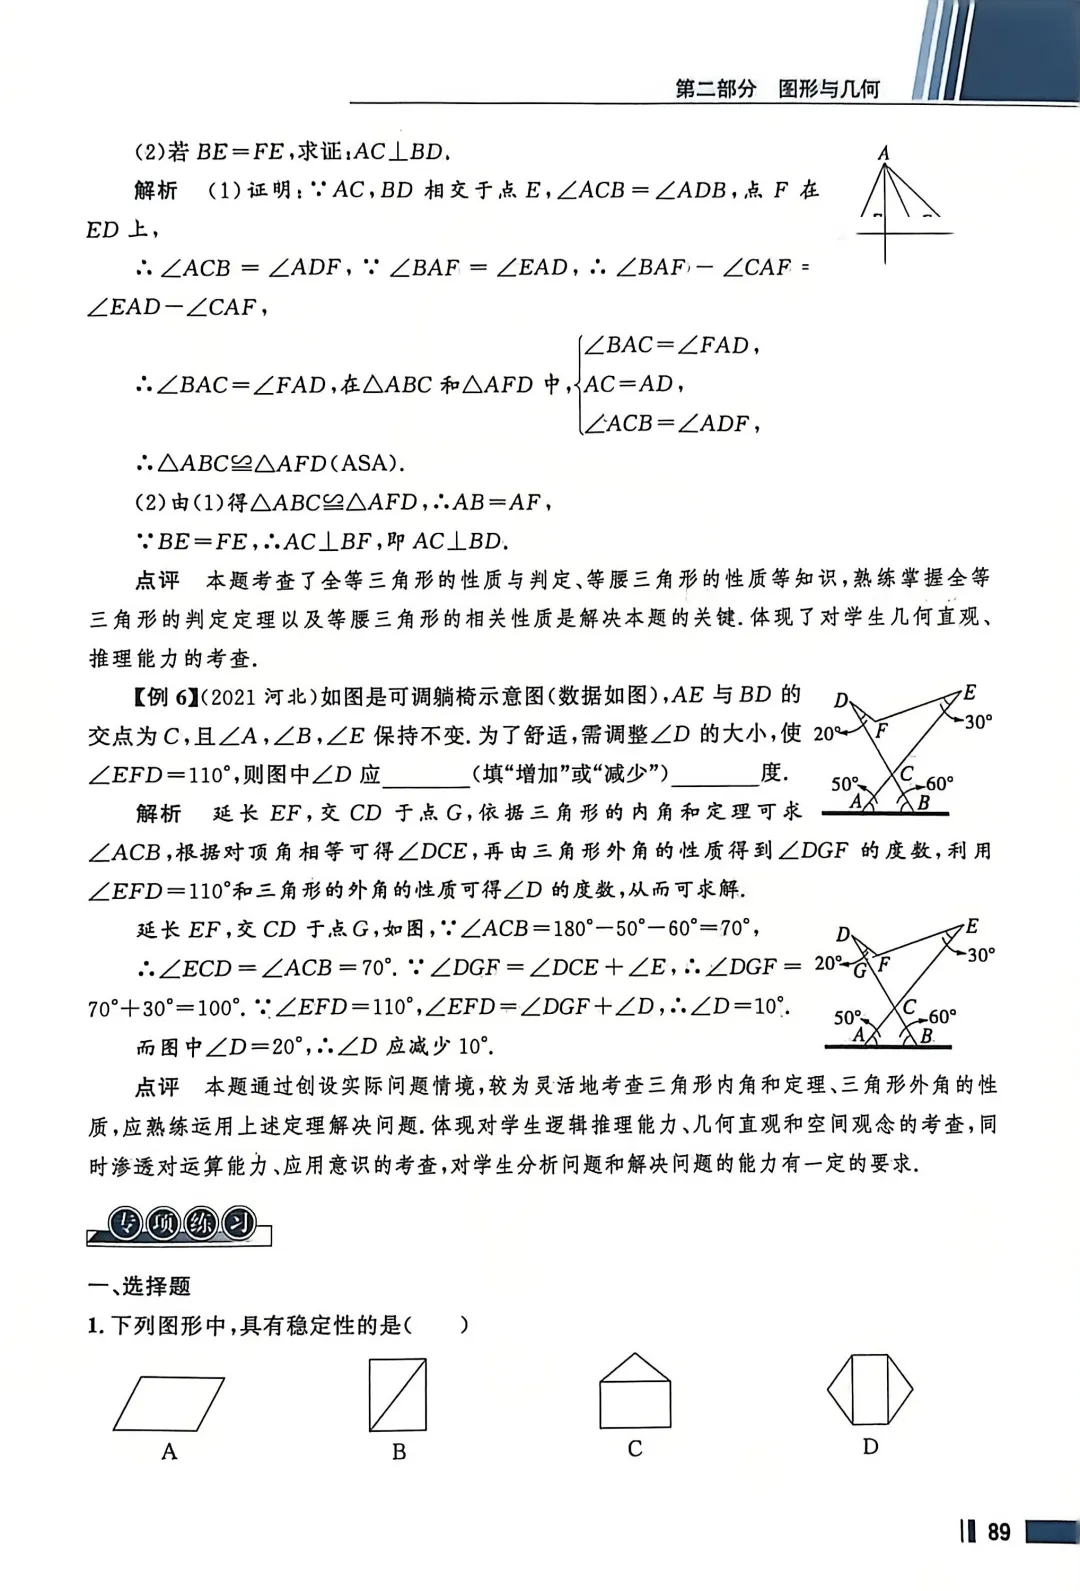 第二部分 图形与几何
(2)若 BE=FE,求证:AC⊥BD.
解析 (1)证明:∵AC,BD 相交于点 E,∠ACB=∠ADB,点 F 在
ED 上,
∴∠ACB=∠ADF,∵∠BAF=∠EAD,∴∠BAF-∠CAF=
∠EAD-∠CAF,
∴∠BAC=∠FAD,在△ABC 和△AFD 中,{∠BAC=∠FAD,
AC=AD,
∠ACB=∠ADF,
∴△ABC≌△AFD(ASA).
(2)由(1)得△ABC≌△AFD,∴AB=AF,
∵BE=FE,∴AC⊥BF,即 AC⊥BD.
A
点评 本题考查了全等三角形的性质与判定、等腰三角形的性质等知识,熟练掌握全等
三角形的判定定理以及等腰三角形的相关性质是解决本题的关键.体现了对学生几何直观、
推理能力的考查.
【例 6】(2021 河北)如图是可调躺椅示意图(数据如图),AE 与 BD 的
交点为 C,且∠A,∠B,∠E 保持不变.为了舒适,需调整∠D 的大小,使
∠EFD=110°,则图中∠D 应______(填“增加”或“减少”)______度.
D E
20° F 30°
C
50° 60°
A B
解析 延长 EF,交 CD 于点 G,依据三角形的内角和定理可求
∠ACB,根据对顶角相等可得∠DCE,再由三角形外角的性质得到∠DGF 的度数,利用
∠EFD=110°和三角形的外角的性质可得∠D 的度数,从而可求解.
延长 EF,交 CD 于点 G,如图,∵∠ACB=180°-50°-60°=70°,
∴∠ECD=∠ACB=70°.∵∠DGF=∠DCE+∠E,∴∠DGF=
70°+30°=100°.∵∠EFD=110°,∠EFD=∠DGF+∠D,∴∠D=10°.
而图中∠D=20°,∴∠D 应减少 10°.
D E
20° G F 30°
C
50° 60°
A B
点评 本题通过创设实际问题情境,较为灵活地考查三角形内角和定理、三角形外角的性
质,应熟练运用上述定理解决问题.体现对学生逻辑推理能力、几何直观和空间观念的考查,同
时渗透对运算能力、应用意识的考查,对学生分析问题和解决问题的能力有一定的要求.
专项练习
一、选择题
1.下列图形中,具有稳定性的是( )
A B C D
89